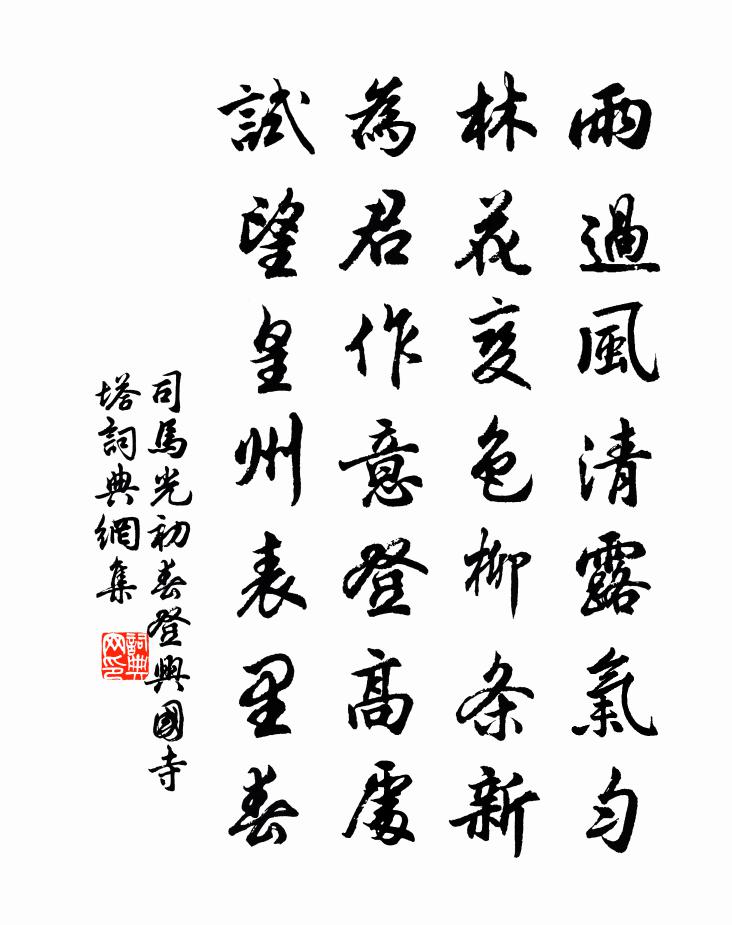 雨過風清露氣勻
林花變色柳条新
為君作意登高處
試望皇州表里春
司馬光初春登興國寺
塔詞典網集
詞典网印